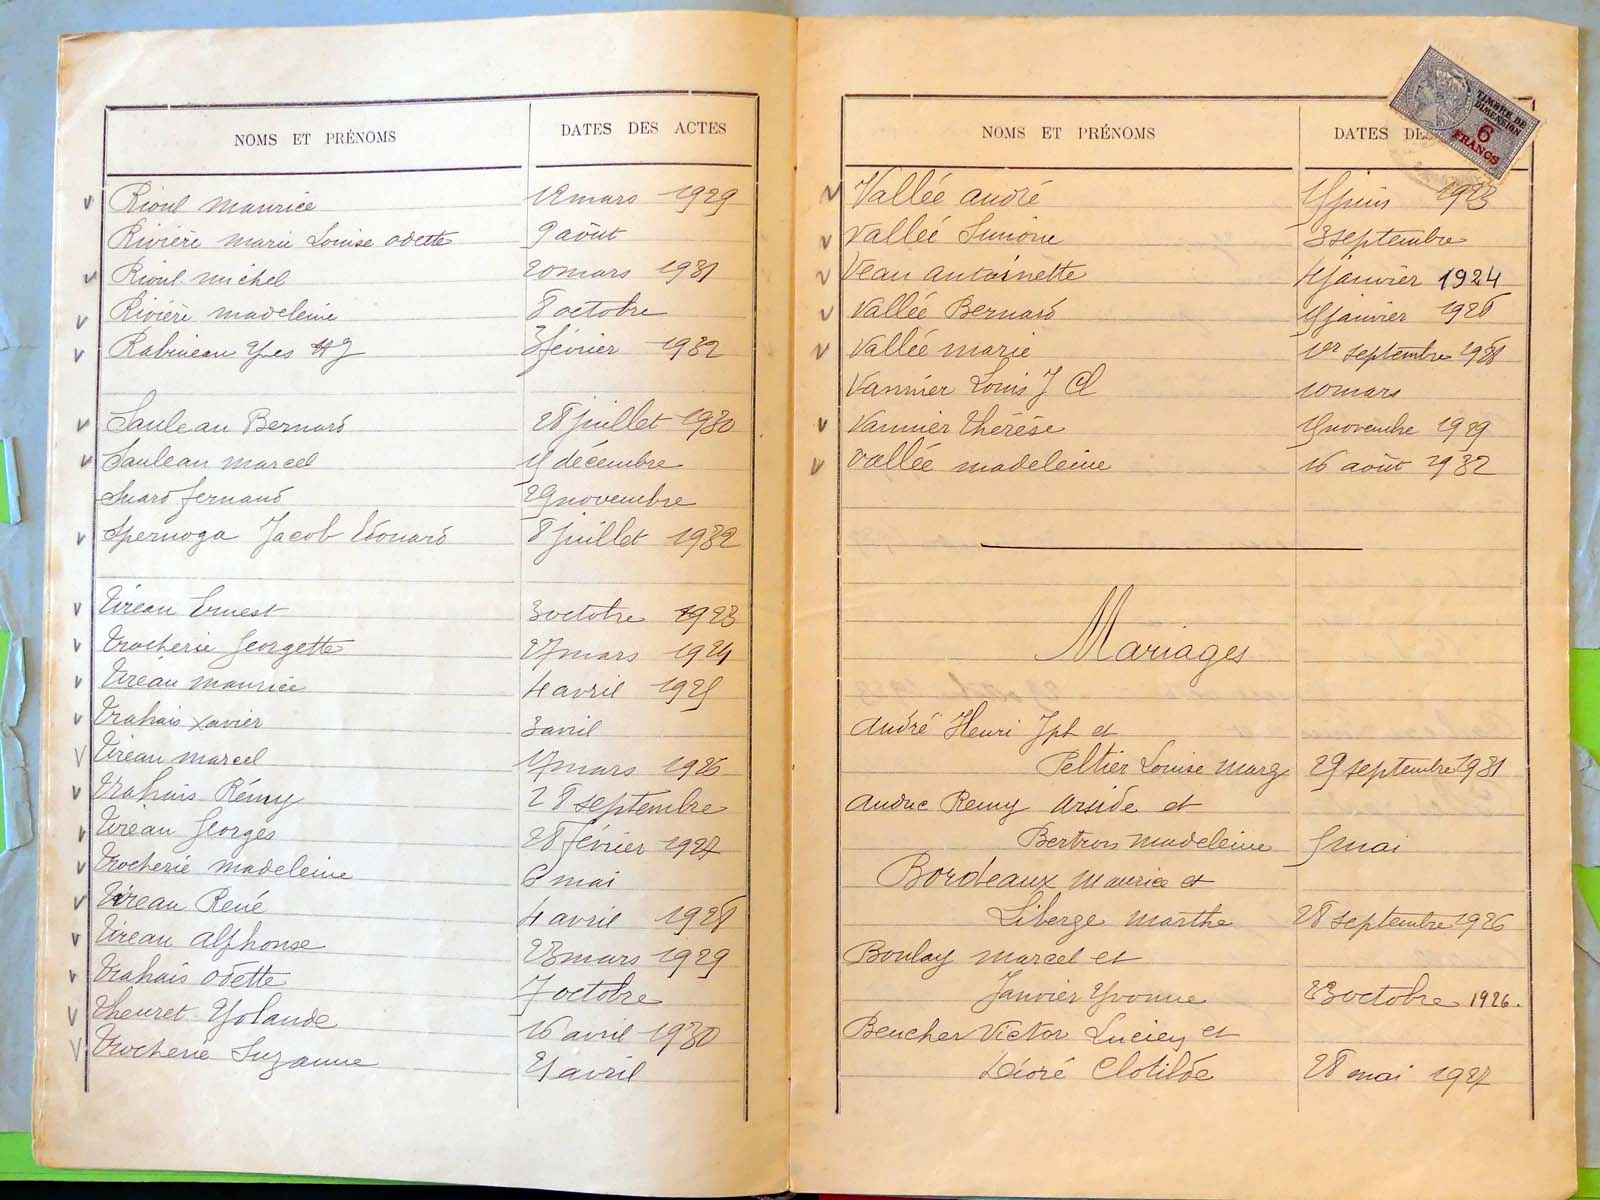 NOMS ET PRÉNOMS DATES DES ACTES
Rioul maurice 12 mars 1929
Rivière marie Louise odette 9 août
Rioul michel 20 mars 1931
Rivière madeleine 8 octobre
Rabineau Yves 3 février 1932
Sauleau Bernard 28 juillet 1930
Sauleau marcel 11 décembre
fernand 29 novembre
Spernoga Jacob Edouard 8 juillet 1932
Tireau Ernest 3 octobre 1923
Trocherie Georgette 27 mars 1924
Tireau maurice 4 avril 1925
Trahais xavier 3 avril
Tireau marcel 17 mars 1926
Trahais Rémy 28 septembre
Tireau Georges 28 février 1927
Trocherie madeleine 6 mai
Tireau René 4 avril 1928
Tireau alphonse 23 mars 1929
Trahais odette 7 octobre
Theuret Yolande 16 avril 1930
Trocherie Suzanne 21 avril
NOMS ET PRÉNOMS DATES DE
TIMBRE DE DIMENSION
6 FRANCS
Vallée andré juin 1923
Vallée Simone 3 septembre
Veau antoinette janvier 1924
Vallée Bernard janvier 1926
Vallée marie 1er septembre 1928
Vannier Louis J Cl 10 mars
Vannier Thérèse novembre 1929
Vallée madeleine 16 août 1932
Mariages
andré Henri Jph et
Peltier Louise marg 29 septembre 1931
Remy et
madeleine 5 mai
Bordeaux maurice et
Liberge marthe 28 septembre 1926
Boulay marcel et
Janvier Yvonne 23 octobre 1926.
Beucher Victor Lucien et
Dioré Clotilde 28 mai 1927